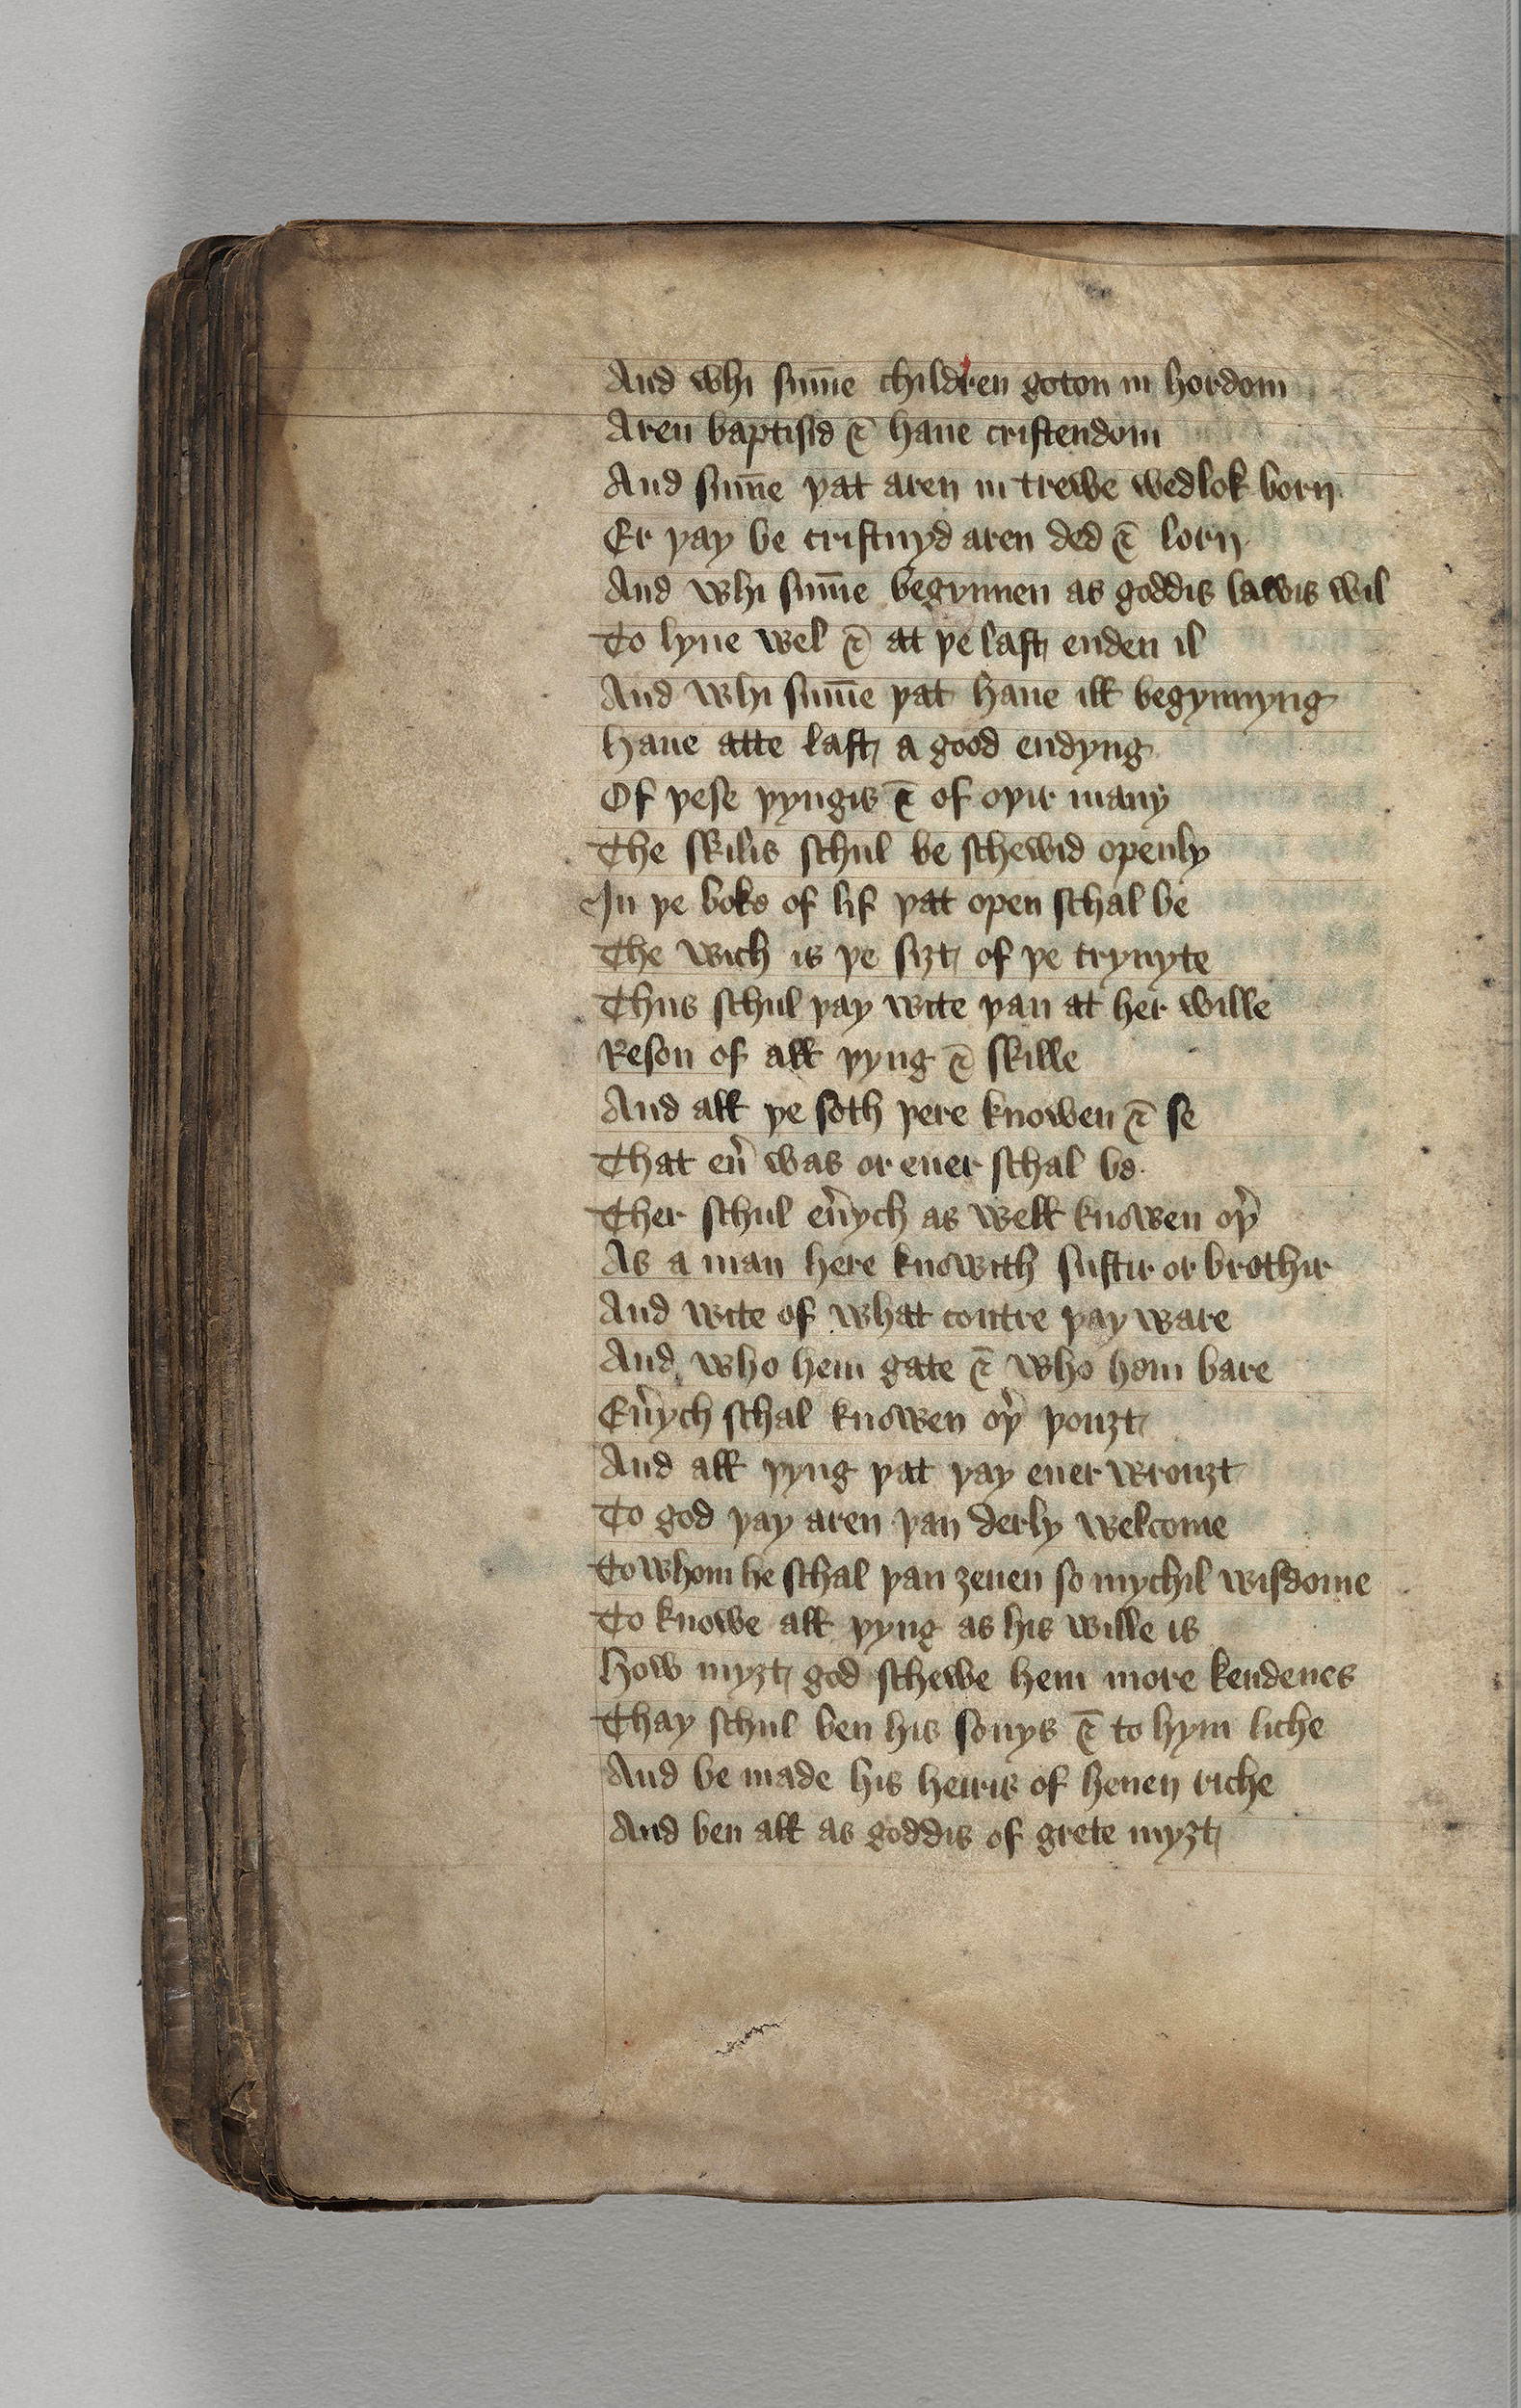 And whi sum̄e children goton in hordom
Aren baptisid ⁊ haue cristendom
And sum̄e þat aren in trewe wedlok born
Er þay be cristnyd aren ded ⁊ lorn
And whi sum̄e begynnen as goddis lawis wil
To lyue wel ⁊ at þe last enden il
And whi sum̄e þat haue ill begynnyng
Haue atte last a good endyng
Of þese þyngis ⁊ of oþir many
The skilis schul be schewid openly
In þe boke of lif þat open schal be
The wich is þe siȝt of þe trynyte
Thus schul þay wite þan at her wille
Reson of all þyng ⁊ skille
And all þe soth þere knowen ⁊ se
That eu̓ was or euer schal be
Ther schul eu̓ych as well knowen oþ̓
As a man here knowith sustir or brothir
And wite of what contre þay ware
And who hem gate ⁊ who hem bare
Eu̓ych schal knowen oþ̓ þouȝt
And all þyng þat þay euer wrouȝt
To god þay aren þan derly welcome
To whom he schal þan ȝeuen so mychil wisdome
To knowe all þyng as his wille is
How myȝt god schewe hem more kendenes
Thay schul ben his sonys ⁊ to hym liche
And be made his heiris of heuen riche
And ben all as goddis of grete myȝt